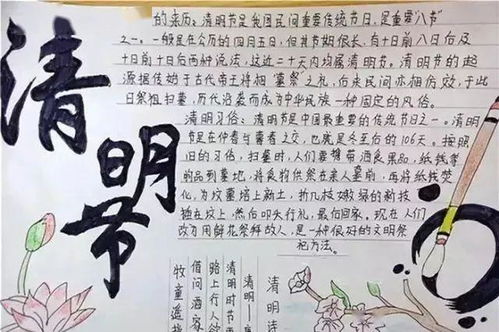 清明节
的来历：清明节是我国民间重要传统节日，是重要"八节"
之一。一般是在公历的四月五日，但其节期很长，有十日前八日后及
十日前十日后两种说法，这近二十天内均属清明节。清明节的起
源据传始于古代帝王将相"墓祭"之礼，后来民间亦相仿效，于此
日祭祖扫墓，历代沿袭而成为中华民族一种固定的风俗。
清明习俗：清明节是中国最重要的传统节日之一。清明
节是在仲春与暮春之交，也就是冬至后的106天。按照
旧的习俗，扫墓时，人们要携带酒食果品，纸钱等
物品到墓地，将食物供祭在亲人墓前，再将纸钱焚
化，为坟墓培上新土，折几枝嫩绿的新枝
插在坟上，然后叩头行礼，最后回家。现在人们
改为用鲜花祭拜故人，是一种很好的文明祭
祀方法。
清明诗
清明一
清明时节
路上行人欲
借问酒家
牧童遥指